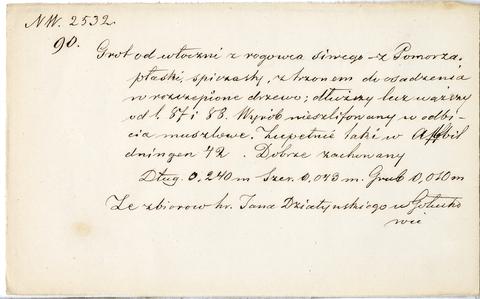 NW. 2532.
90.
Grot od włóczni z rogowca siwego - z Pomorza,
płaski, spiczasty, z trzonem do osadzenia
w rozszczepione drzewo; dłuższy lecz węższy
od l. 87 i 88. Wyrób nieszlifowany w odbi-
cia muszlowe. Zupełnie taki w Afbil
dningen 42. Dobrze zachowany
Dług. 0,240 m Szer. 0,043 m. Grub 0,010 m
Ze zbiorow hr. Jana Działyńskiego w Gołucho
wie